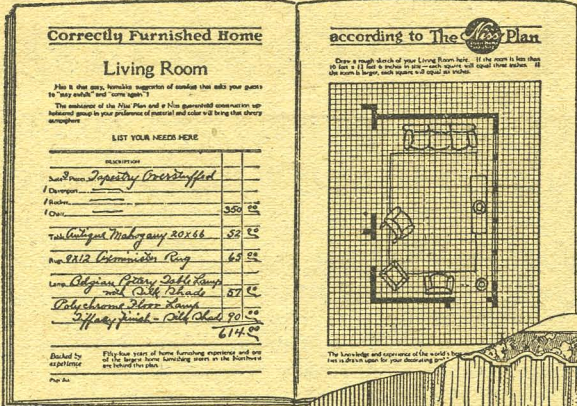 Correctly Furnished Home
Living Room
Ness is that easy, homelike suggestion of comfort that asks your guests
to "stay awhile" and "come again"!
The assistance of the Ness Plan and a Ness guaranteed construction up-
holstered group in your preference of material and color will bring that cheery
atmosphere
LIST YOUR NEEDS HERE
DESCRIPTION
Suite 3 Pieces Tapestry Overstuffed
1 Davenport
1 Rocker
1 Chair 350 00
Table Antique Mahogany 20x66 52 00
Rug 9x12 Axminister Rug 65 00
Lamp Belgian Pottery Table Lamp
with Silk Shade 57 00
Polychrome Floor Lamp
Tiffany finish - Silk Shade 90 00
614 00
Backed by
experience
Fifty-four years of home furnishing experience and one
of the largest home furnishing stores in the Northwest
are behind this plan.
Page Six
according to The Ness Plan
Draw a rough sketch of your Living Room here. If the room is less than
10 feet x 12 feet 6 inches in size—each square will equal three inches. If
the room is larger, each square will equal six inches.
The knowledge and experience of the world's best
ties is drawn upon for your decorating